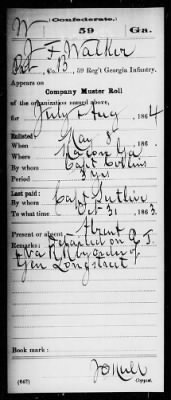 W (Confederate.) 59 Ga.
J F Walker
Pvt, Co. B, 59 Reg't Georgia Infantry.
Appears on
Company Muster Roll
of the organization named above,
for July & Aug, 1864
Enlisted:
When May 8, 186
Where Macon Ga
By whom Capt Collins
Period 3 yrs
Last paid:
By whom Capt
To what time Oct 31, 1863.
Present or absent Absent
Remarks: Detailed on E. T.
& Va R R by order of
Gen Longstreet
Book mark:
(642) Copyist.